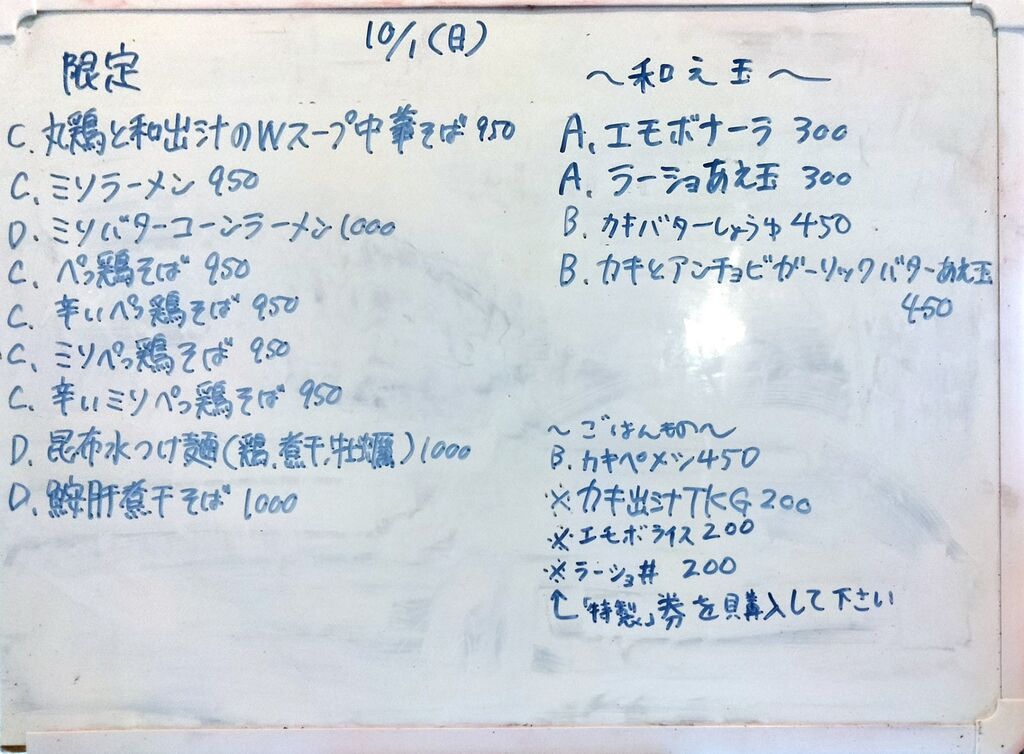 10/1(日)
限定
C. 丸鶏と和出汁のWスープ中華そば 950
C. ミソラーメン 950
D. ミソバターコーンラーメン 1000
C. ぺっ鶏そば 950
C. 辛いぺっ鶏そば 950
C. ミソぺっ鶏そば 950
C. 辛いミソぺっ鶏そば 950
D. 昆布水つけ麺(鶏,煮干,牡蠣) 1000
D. 鮟肝煮干そば 1000
〜和え玉〜
A. エモボナーラ 300
A. ラーショあえ玉 300
B. カキバターしょうゆ 450
B. カキとアンチョビガーリックバターあえ玉
450
〜ごはんもの〜
B. カキペメシ 450
※カキ出汁TKG 200
※エモボライス 200
※ラーショ丼 200
↑「特製」券を購入して下さい